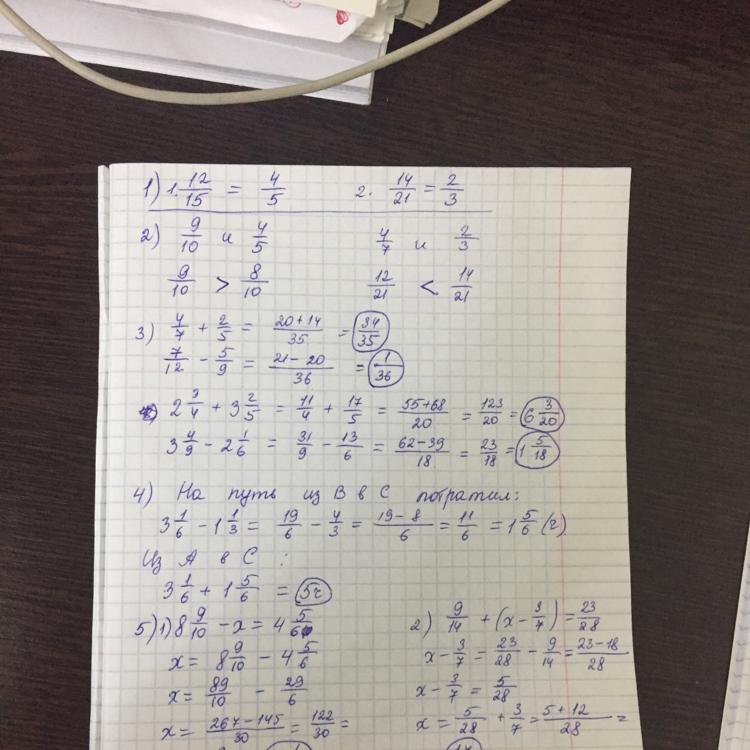 1) 1. 12/15 = 4/5   2. 14/21 = 2/3
2) 9/10 и 4/5   4/7 и 2/3
9/10 > 8/10   12/21 < 14/21
3) 4/7 + 2/5 = 20+14/35 = 34/35
7/12 - 5/9 = 21-20/36 = 1/36
2 3/4 + 3 2/5 = 11/4 + 17/5 = 55+68/20 = 123/20 = 6 3/20
3 4/9 - 2 1/6 = 31/9 - 13/6 = 62-39/18 = 23/18 = 1 5/18
4) На путь из В в С потратил:
3 1/6 - 1 1/3 = 19/6 - 4/3 = 19-8/6 = 11/6 = 1 5/6 (ч).
Из А в С:
3 1/6 + 1 5/6 = 5ч
5) 1) 8 9/10 - x = 4 5/6
x = 8 9/10 - 4 5/6
x = 89/10 - 29/6
x = 267-145/30 = 122/30 =
2) 9/14 + (x - 3/7) = 23/28
x - 3/7 = 23/28 - 9/14 = 23-18/28
x - 3/7 = 5/28
x = 5/28 + 3/7 = 5+12/28 =